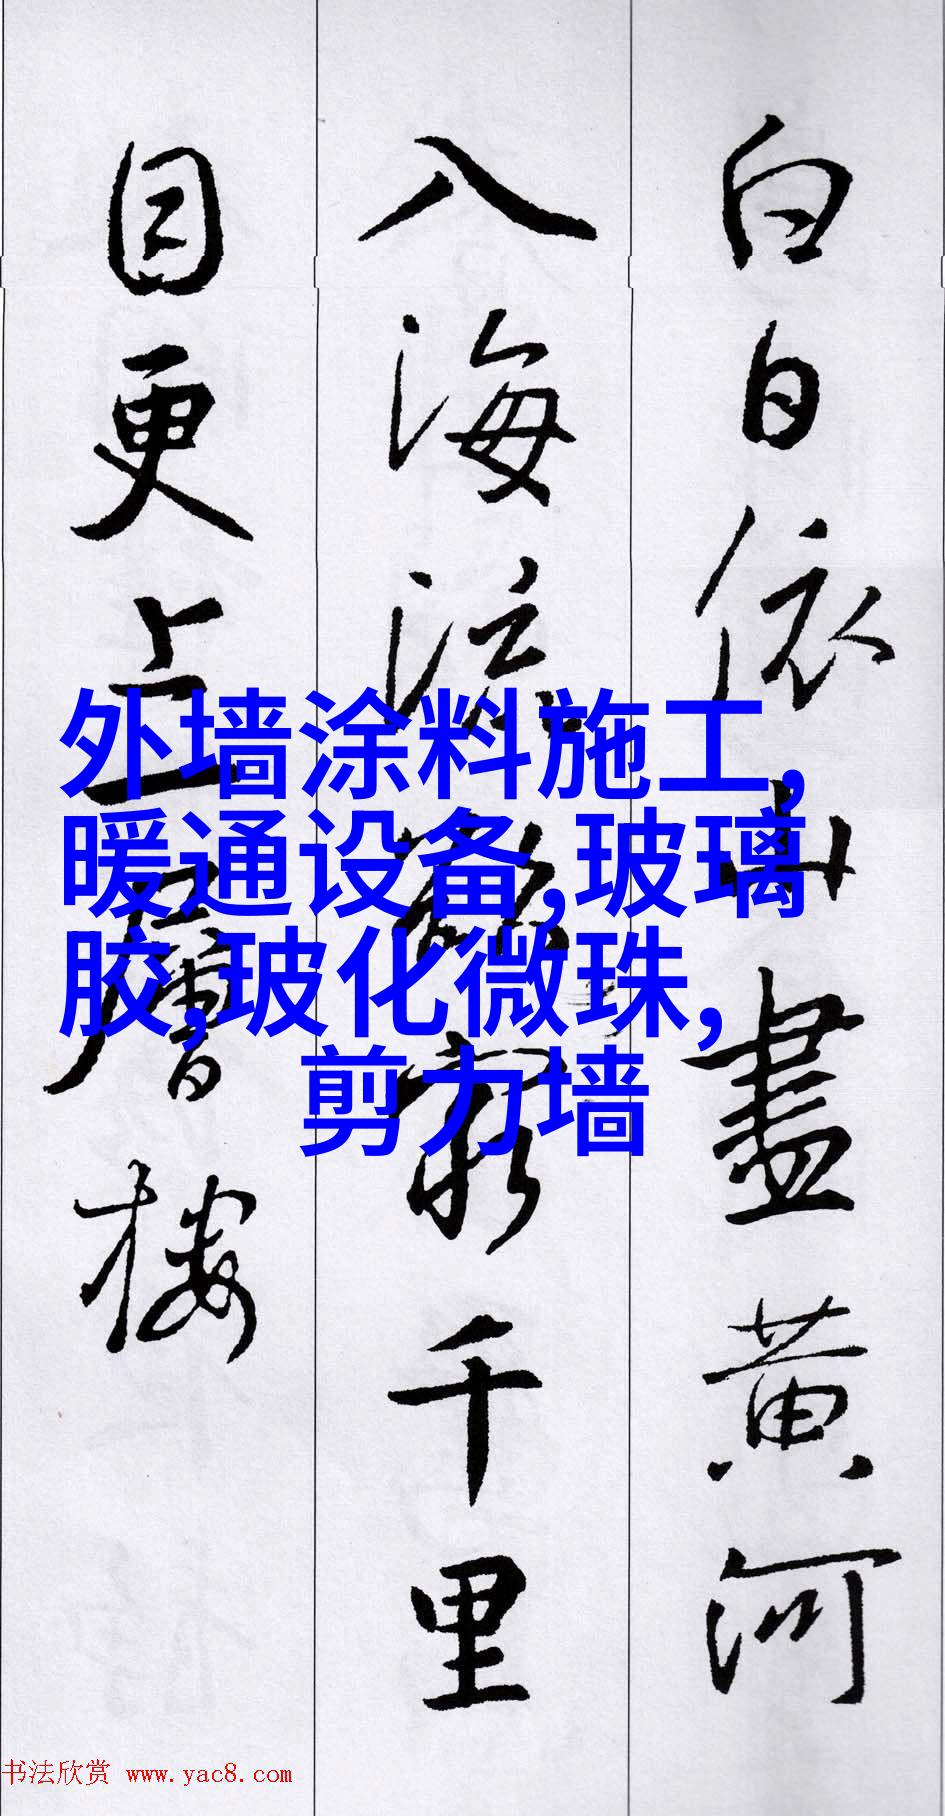 白日依山盡黄河
入海流欲窮千里
目更上一層樓
外墙涂料施工,
暖通设备,玻璃
胶,玻化微珠,
剪力墙
书法欣赏 www.yac8.com